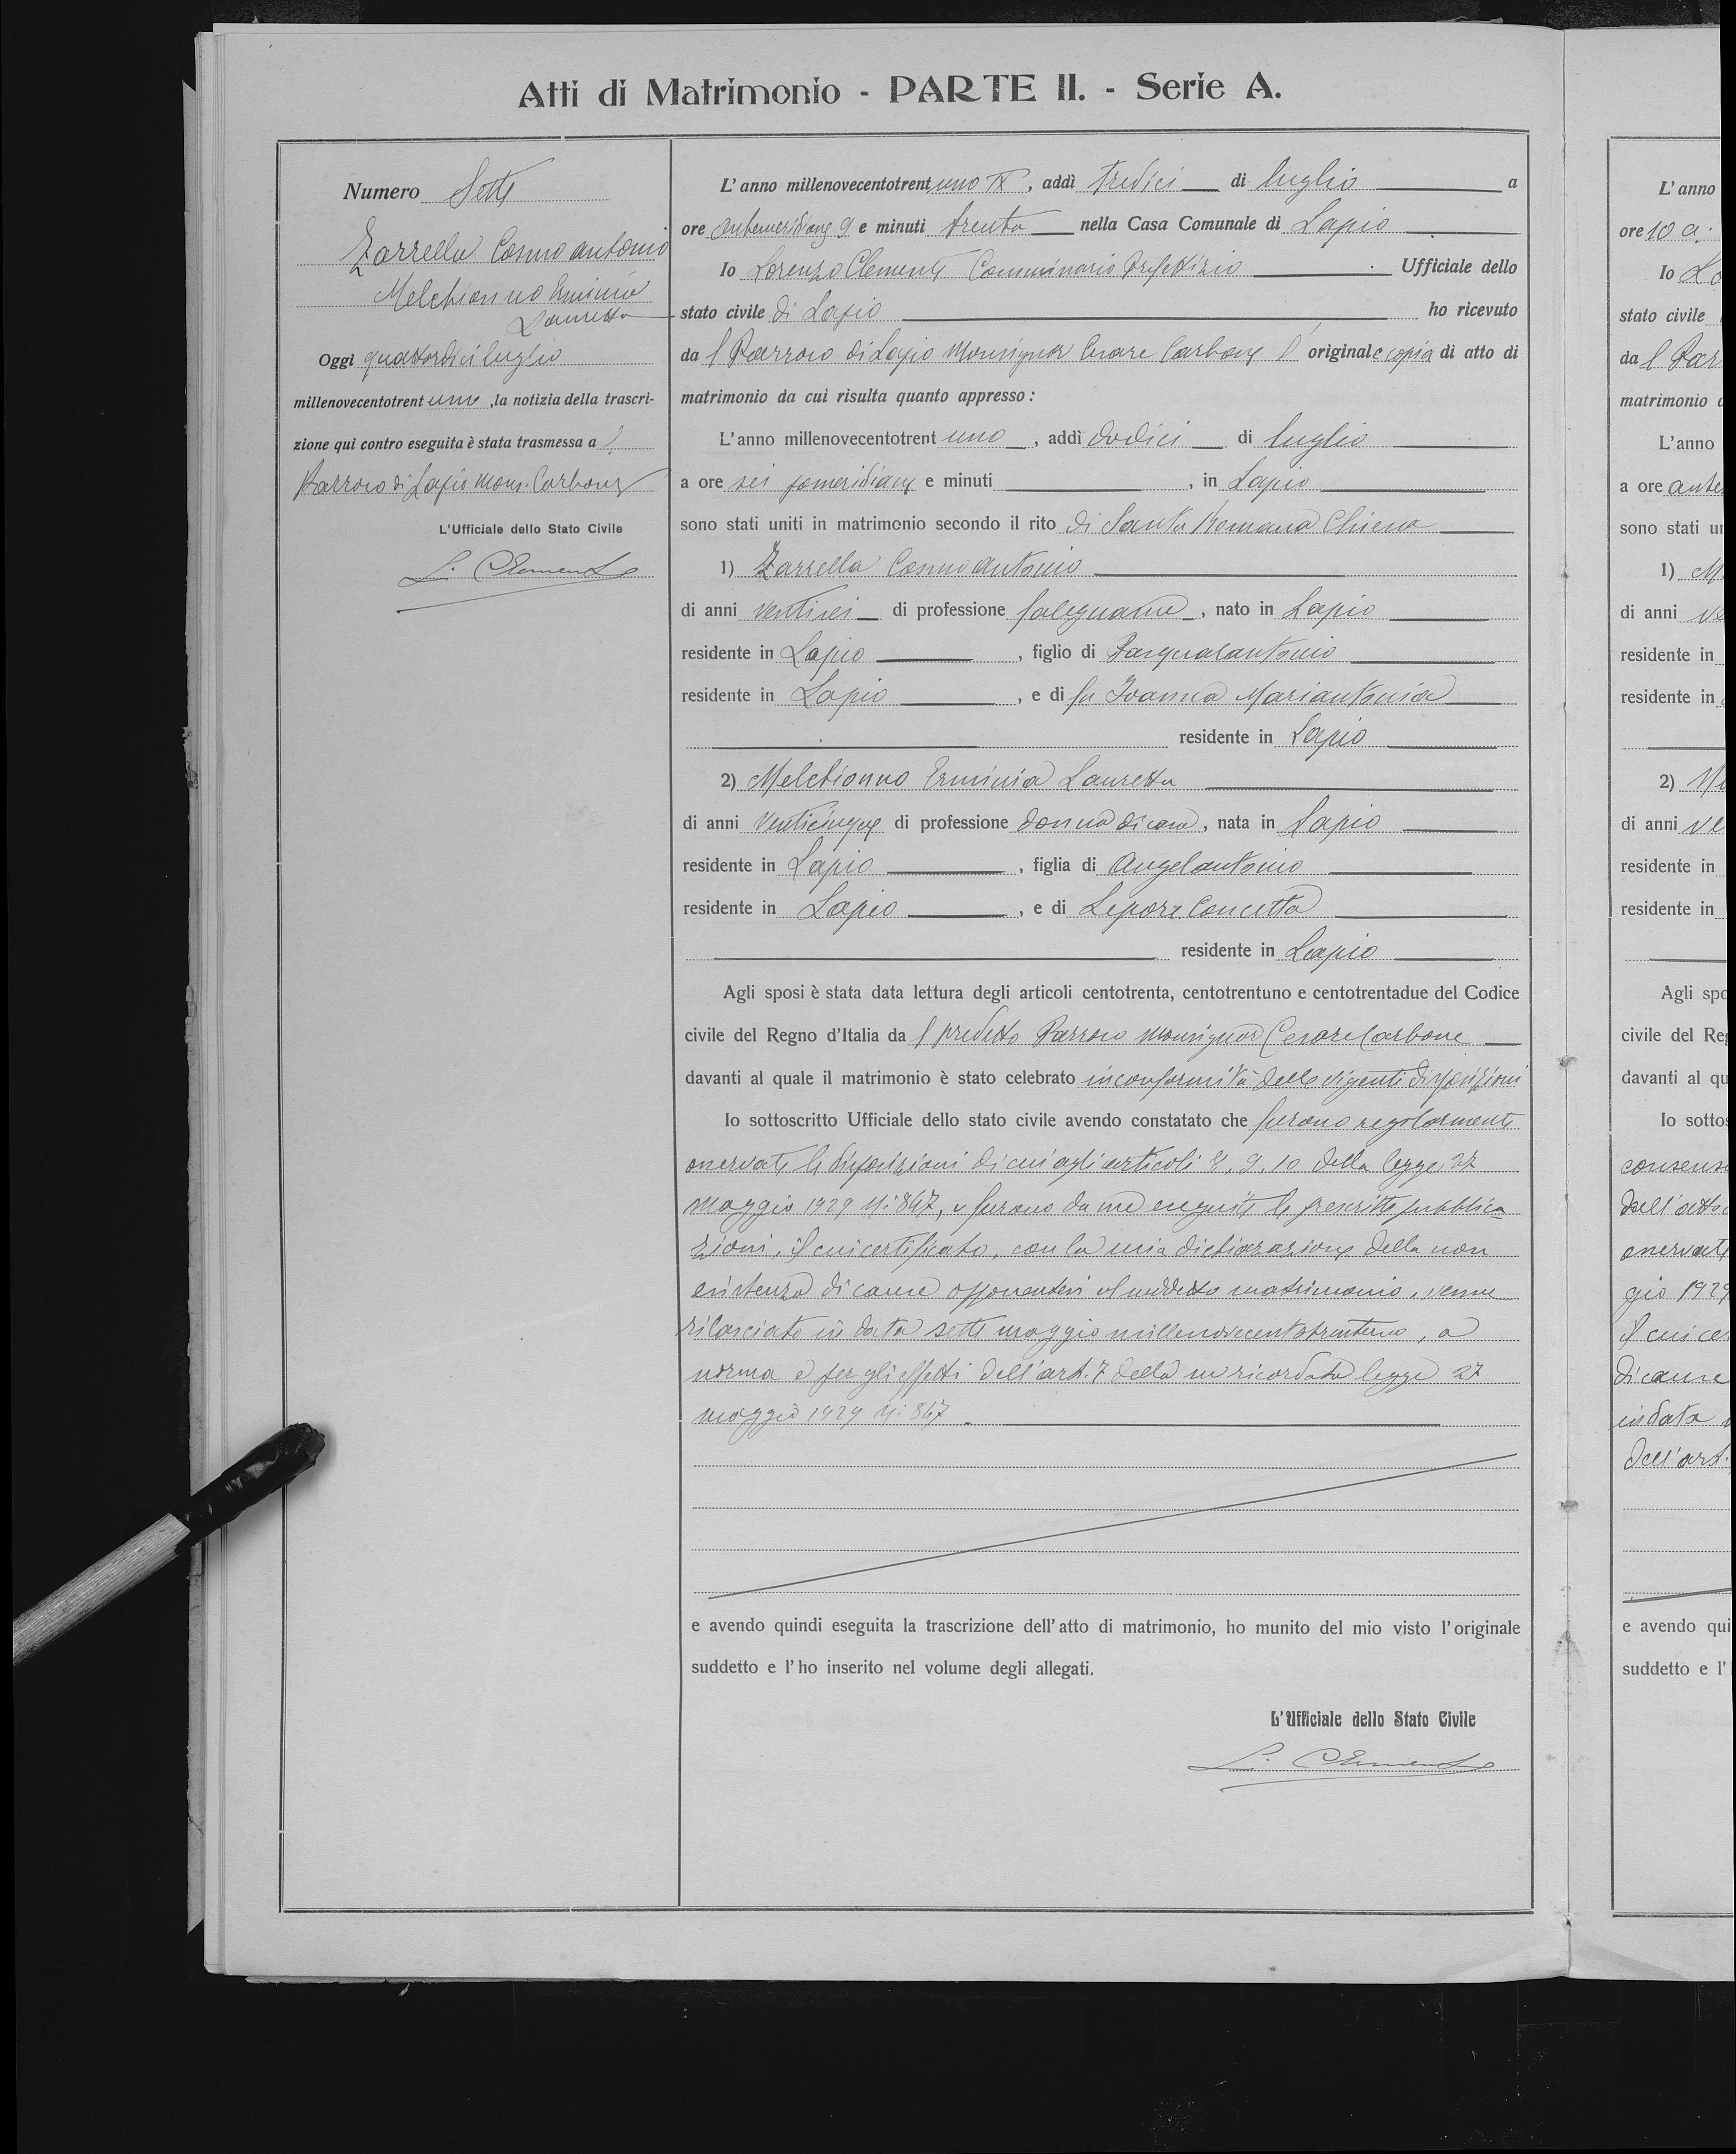 Atti di Matrimonio - PARTE II. - Serie A.
Numero Sette
Zarrella Cosmo Antonio
Melchionno Erminia
Lauretta
Oggi quattordici luglio
millenovecentotrent uno, la notizia della trascri-
zione qui contro eseguita è stata trasmessa a l
Parroco di Lapio Mons. Carbone
L'Ufficiale dello Stato Civile
L. Clemente
L'anno millenovecentotrent uno IX, addì tredici di luglio a
ore antimeridiane 9 e minuti trenta nella Casa Comunale di Lapio
Io Lorenzo Clemente Commissario Prefettizio Ufficiale dello
stato civile di Lapio ho ricevuto
da l Parroco di Lapio Monsignor Cesare Carbone l' originale copia di atto di
matrimonio da cui risulta quanto appresso:
L'anno millenovecentotrent uno, addì dodici di luglio
a ore sei pomeridiane e minuti , in Lapio
sono stati uniti in matrimonio secondo il rito di Santa Romana Chiesa
1) Zarrella Cosmo Antonio
di anni ventisei di professione falegname, nato in Lapio
residente in Lapio , figlio di Pasqualantonio
residente in Lapio , e di fu Ivanna Mariantonia
residente in Lapio
2) Melchionno Erminia Lauretta
di anni Venticinque di professione donna di casa, nata in Lapio
residente in Lapio , figlia di Angelantonio
residente in Lapio , e di Lepore Concetta
residente in Lapio
Agli sposi è stata data lettura degli articoli centotrenta, centotrentuno e centotrentadue del Codice
civile del Regno d'Italia da l predetto Parroco Monsignor Cesare Carbone
davanti al quale il matrimonio è stato celebrato in conformità delle vigenti disposizioni
Io sottoscritto Ufficiale dello stato civile avendo constatato che furono regolarmente
osservate le disposizioni di cui agli articoli 8, 9, 10 della legge 27
maggio 1929 N: 847, e furono da me eseguite le prescritte pubblica
zioni, il cui certificato, con la mia dichiarazione della non
esistenza di cause opponentesi al suddetto matrimonio, venne
rilasciato in data sette maggio millenovecentotrentuno, a
norma e per gli effetti dell'art. 7 della su ricordata legge 27
maggio 1929 N: 847.
e avendo quindi eseguita la trascrizione dell'atto di matrimonio, ho munito del mio visto l'originale
suddetto e l'ho inserito nel volume degli allegati.
L'Ufficiale dello Stato Civile
L. Clemente
L'anno
ore 10 a.
Io Lo
stato civile
da l Par
matrimonio
L'anno
a ore ante
sono stati un
1) M
di anni ve
residente in
residente in
2) M
di anni ve
residente in
residente in
Agli spo
civile del Reg
davanti al qu
Io sottos
consens
dell'atto
osservate
gio 1929
il cui ce
di cause
in data
dell'art.
e avendo qui
suddetto e l'